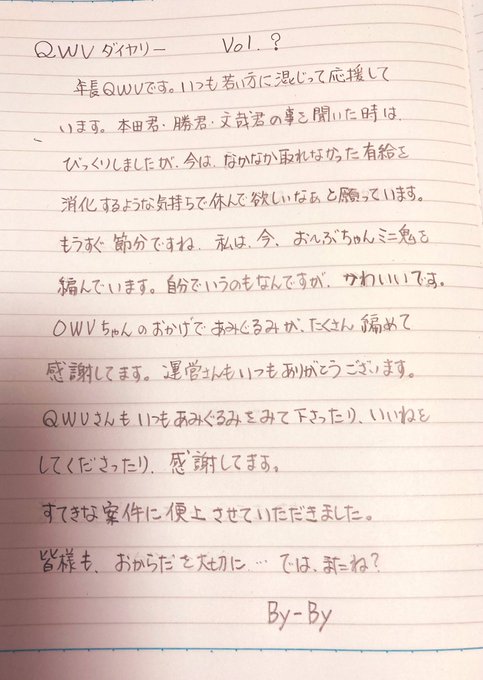 QWVダイヤリー Vol.?
年長QWVです。いつも若い方に混じって応援して
います。本田君・勝君・文哉君の事を聞いた時は、
びっくりしましたが、今は、なかなか取れなかった有給を
消化するような気持ちで休んで欲しいなぁと願っています。
もうすぐ節分ですね、私は、今、おぶちゃんミニ鬼を
編んでいます。自分でいうのもなんですが、かわいいです。
OWVちゃんのおかげであみぐるみが、たくさん編めて
感謝してます。運営さんもいつもありがとうございます。
QWVさんもいつもあみぐるみをみて下さったり、いいねを
してくださったり、感謝してます。
すてきな案件に便上させていただきました。
皆様も、おからだを大切に… では、またね?
By-By